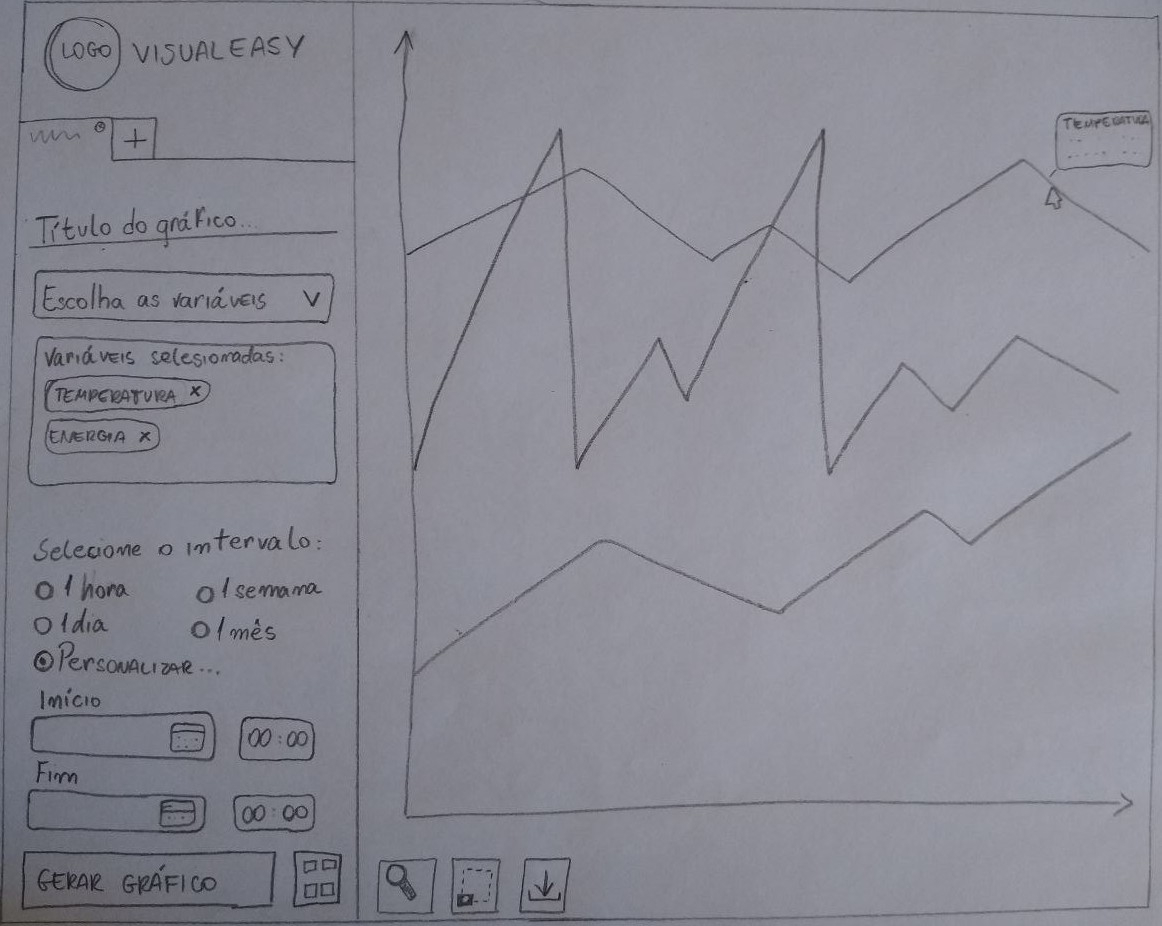 LOGO VISUALEASY
+
Título do gráfico...
Escolha as variáveis V
Variáveis selesionadas:
TEMPERATURA x
ENERGIA x
Selecione o intervalo:
1 hora 1 semana
1 dia 1 mês
Personalizar...
Início
00:00
Fim
00:00
GERAR GRÁFICO
TEMPERATURA